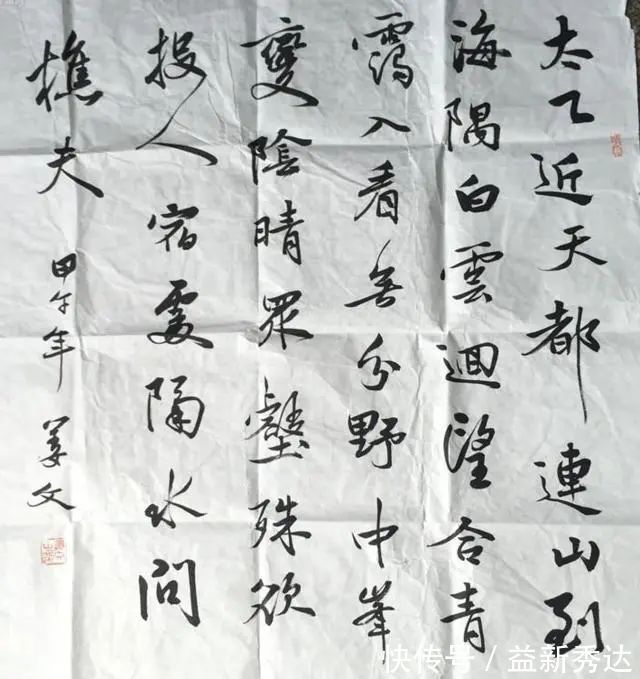 太乙近天都連山到
海隅白雲迴望合青
靄入看無分野中峯
變陰晴眾壑殊欲
投人宿處隔水問
樵夫 甲午年 姜文
快传号 / 益新秀达